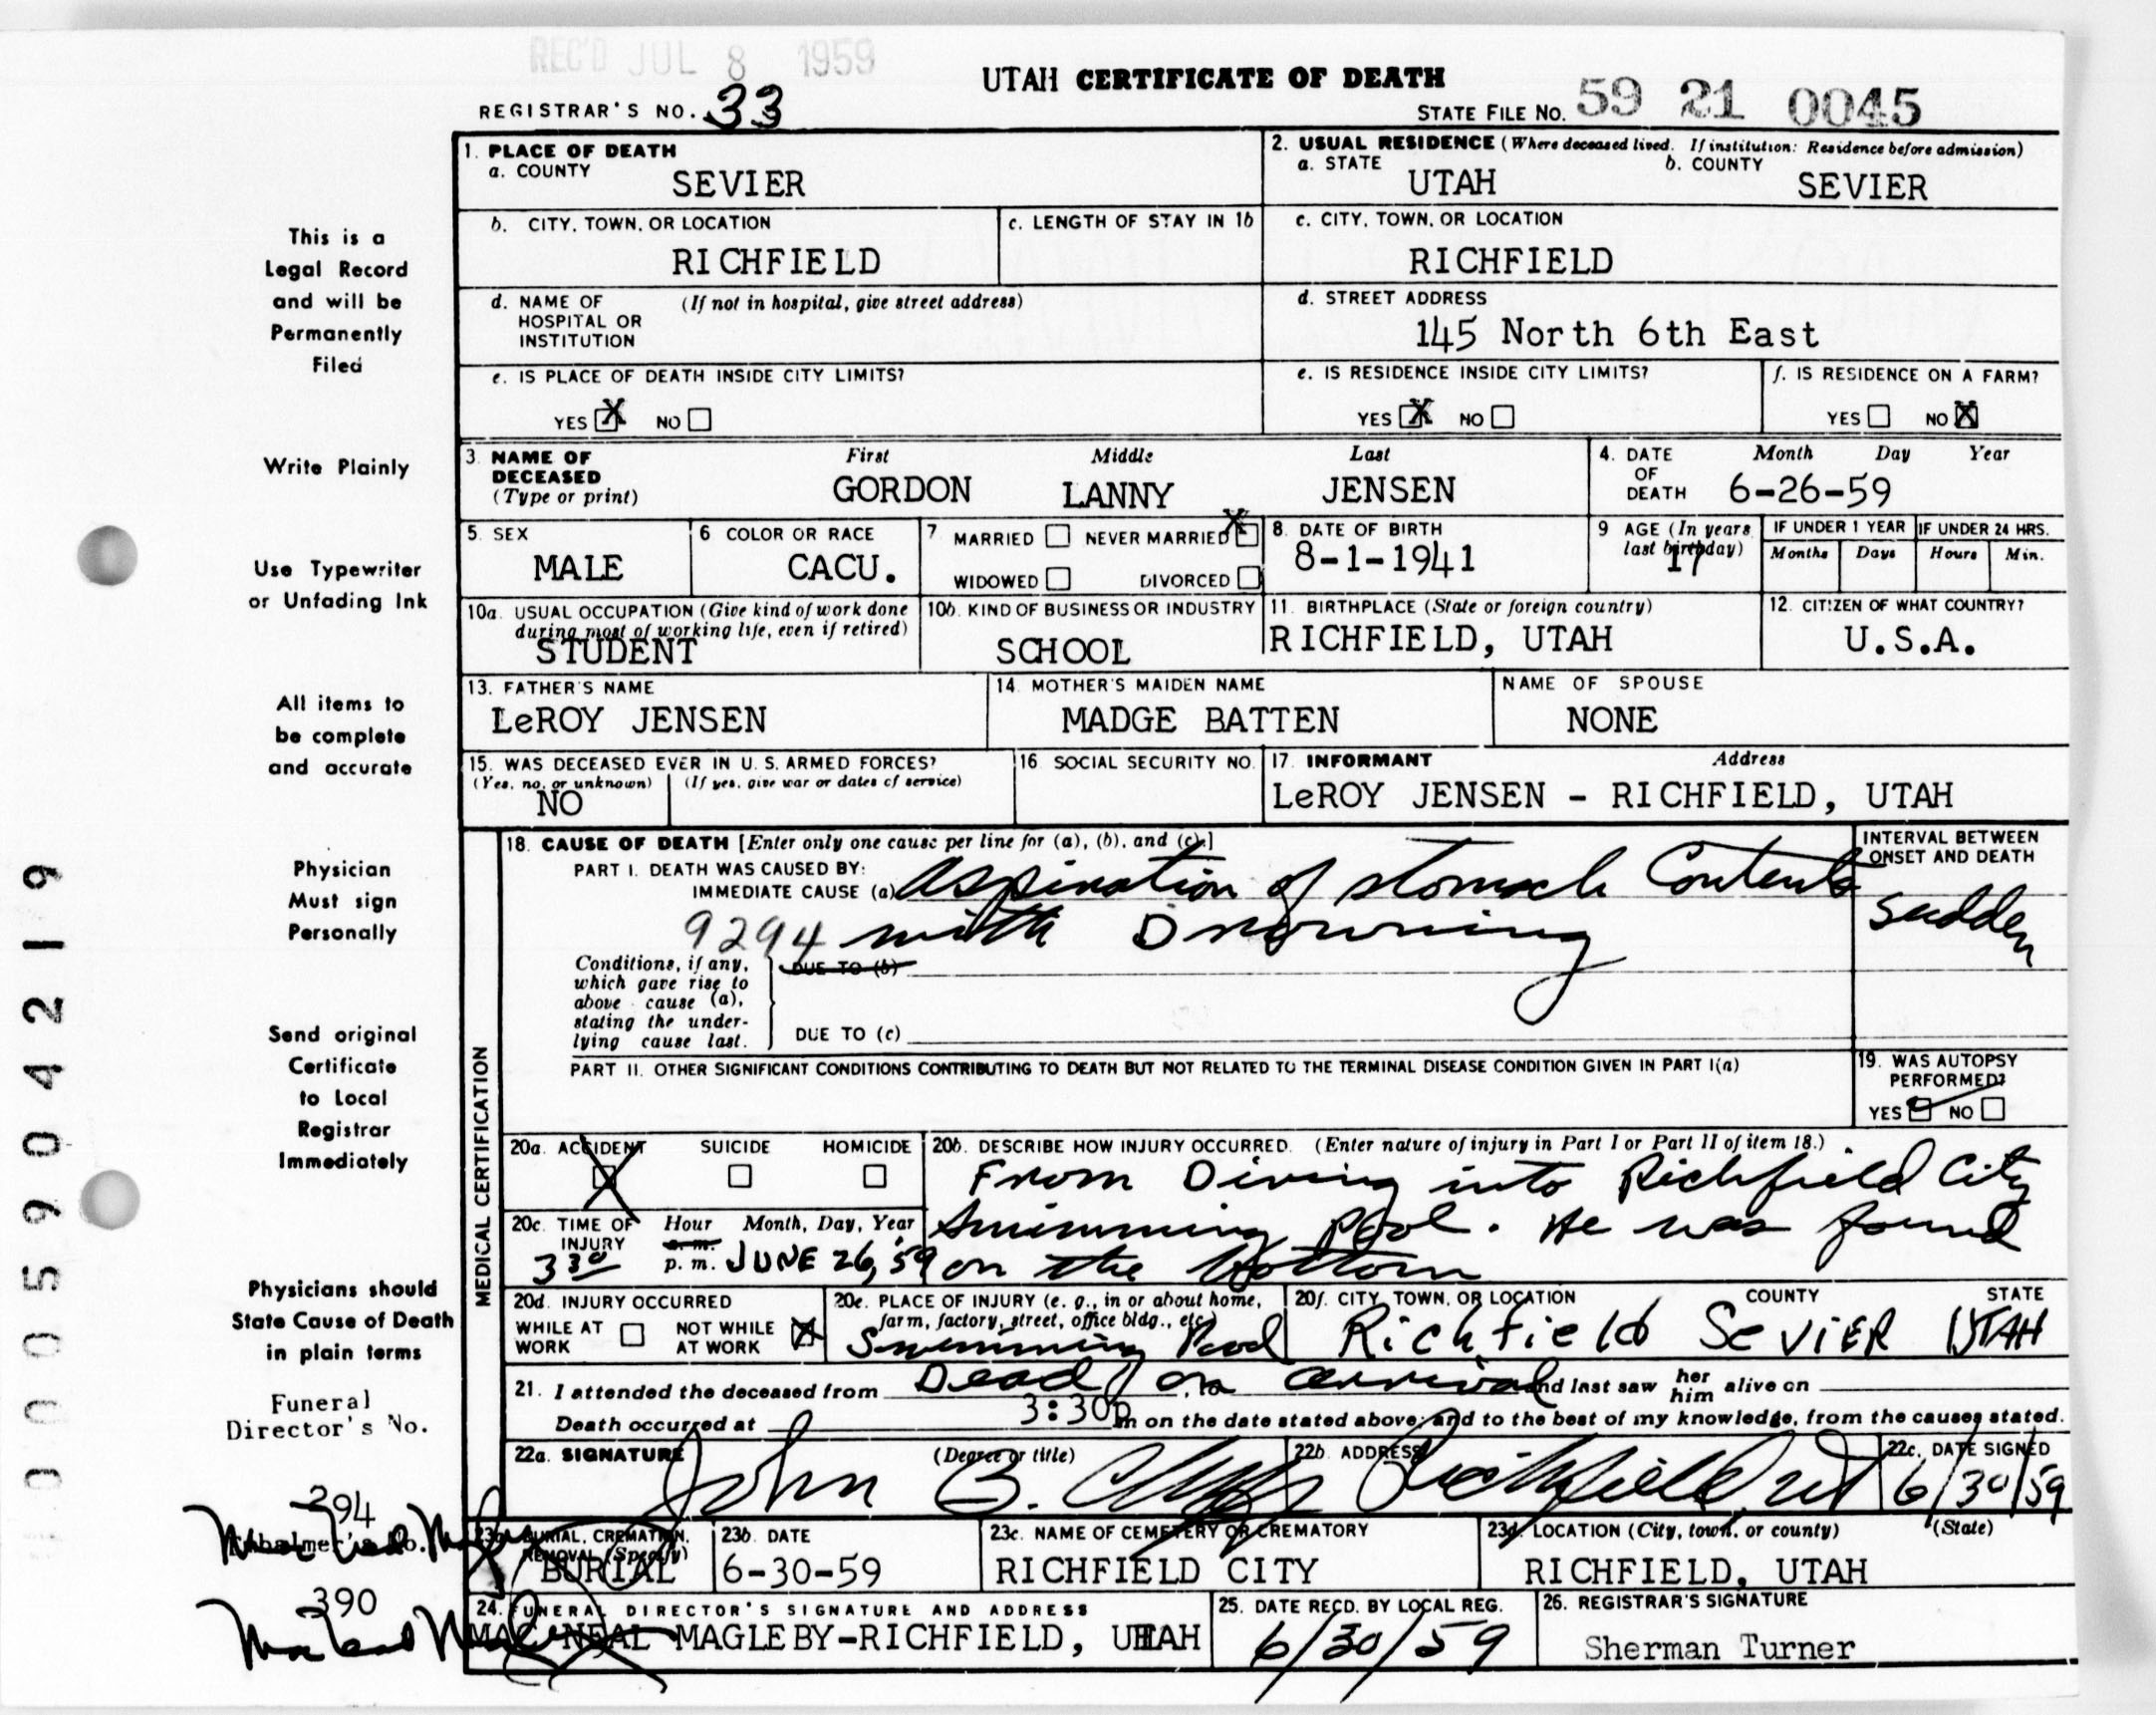 REC'D JUL 8 1959
UTAH CERTIFICATE OF DEATH
REGISTRAR'S NO. 33
STATE FILE NO. 59 21 0045
1. PLACE OF DEATH
a. COUNTY
SEVIER
2. USUAL RESIDENCE (Where deceased lived. If institution: Residence before admission)
a. STATE
UTAH
b. COUNTY
SEVIER
b. CITY, TOWN, OR LOCATION
RICHFIELD
c. LENGTH OF STAY IN 1b
c. CITY, TOWN, OR LOCATION
RICHFIELD
d. NAME OF HOSPITAL OR INSTITUTION
(If not in hospital, give street address)
d. STREET ADDRESS
145 North 6th East
e. IS PLACE OF DEATH INSIDE CITY LIMITS?
YES X NO
e. IS RESIDENCE INSIDE CITY LIMITS?
YES X NO
f. IS RESIDENCE ON A FARM?
YES NO X
3. NAME OF DECEASED
(Type or print)
First Middle Last
GORDON LANNY JENSEN
4. DATE OF DEATH
Month Day Year
6-26-59
5. SEX
MALE
6 COLOR OR RACE
CACU.
7 MARRIED NEVER MARRIED X
WIDOWED DIVORCED
8. DATE OF BIRTH
8-1-1941
9 AGE (In years last birthday)
17
IF UNDER 1 YEAR
Months Days
IF UNDER 24 HRS.
Hours Min.
10a. USUAL OCCUPATION (Give kind of work done during most of working life, even if retired)
STUDENT
10b. KIND OF BUSINESS OR INDUSTRY
SCHOOL
11. BIRTHPLACE (State or foreign country)
RICHFIELD, UTAH
12. CITIZEN OF WHAT COUNTRY?
U.S.A.
13. FATHER'S NAME
LeROY JENSEN
14. MOTHER'S MAIDEN NAME
MADGE BATTEN
NAME OF SPOUSE
NONE
15. WAS DECEASED EVER IN U. S. ARMED FORCES?
(Yes, no, or unknown) (If yes, give war or dates of service)
NO
16 SOCIAL SECURITY NO.
17. INFORMANT Address
LeROY JENSEN - RICHFIELD, UTAH
MEDICAL CERTIFICATION
18. CAUSE OF DEATH [Enter only one cause per line for (a), (b), and (c).]
PART I. DEATH WAS CAUSED BY:
IMMEDIATE CAUSE (a) aspiration of stomach Contents
9294 with Drowning
INTERVAL BETWEEN ONSET AND DEATH
sudden
Conditions, if any, which gave rise to above cause (a), stating the underlying cause last.
DUE TO (b)
DUE TO (c)
PART II. OTHER SIGNIFICANT CONDITIONS CONTRIBUTING TO DEATH BUT NOT RELATED TO THE TERMINAL DISEASE CONDITION GIVEN IN PART I(a)
19. WAS AUTOPSY PERFORMED?
YES NO
20a. ACCIDENT SUICIDE HOMICIDE
X
20b. DESCRIBE HOW INJURY OCCURRED. (Enter nature of injury in Part I or Part II of item 18.)
From Diving into Richfield City
swimming Pool. He was found
on the bottom
20c. TIME OF INJURY
Hour Month, Day, Year
a. m.
3 30 p. m. JUNE 26, 59
20d. INJURY OCCURRED
WHILE AT WORK NOT WHILE AT WORK X
20e. PLACE OF INJURY (e. g., in or about home, farm, factory, street, office bldg., etc.)
Swimming Pool
20f. CITY, TOWN, OR LOCATION COUNTY STATE
Richfield SEVIER UTAH
21. I attended the deceased from Dead on arrival and last saw her him alive on
Death occurred at 3:30p m on the date stated above; and to the best of my knowledge, from the causes stated.
22a. SIGNATURE (Degree or title)
John G.
22b. ADDRESS
Richfield, Ut
22c. DATE SIGNED
6/30/59
23a. BURIAL, CREMATION, REMOVAL (Specify)
BURIAL
23b. DATE
6-30-59
23c. NAME OF CEMETERY OR CREMATORY
RICHFIELD CITY
23d. LOCATION (City, town, or county) (State)
RICHFIELD, UTAH
24. FUNERAL DIRECTOR'S SIGNATURE AND ADDRESS
MAC NEAL MAGLEBY-RICHFIELD, UTAH
25. DATE RECD. BY LOCAL REG.
6/30/59
26. REGISTRAR'S SIGNATURE
Sherman Turner
This is a
Legal Record
and will be
Permanently
Filed
Write Plainly
Use Typewriter
or Unfading Ink
All items to
be complete
and accurate
Physician
Must sign
Personally
Send original
Certificate
to Local
Registrar
Immediately
Physicians should
State Cause of Death
in plain terms
Funeral
Director's No.
394
Embalmer's No.
390
000590 4219